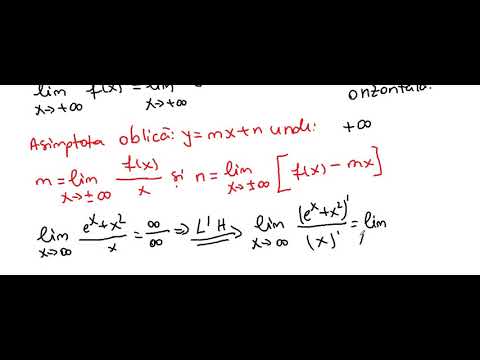 lim f(x) = lim
x→+∞ x→+∞
orizontală.
Asimptota oblică: y=mx+n unde: +∞
m = lim f(x)/x și n = lim [f(x) − mx]
x→±∞ x→±∞
lim (eˣ+x²)/x = ∞/∞ ⇒ L'H ⇒ lim (eˣ+x²)'/(x)' = lim
x→∞ x→∞